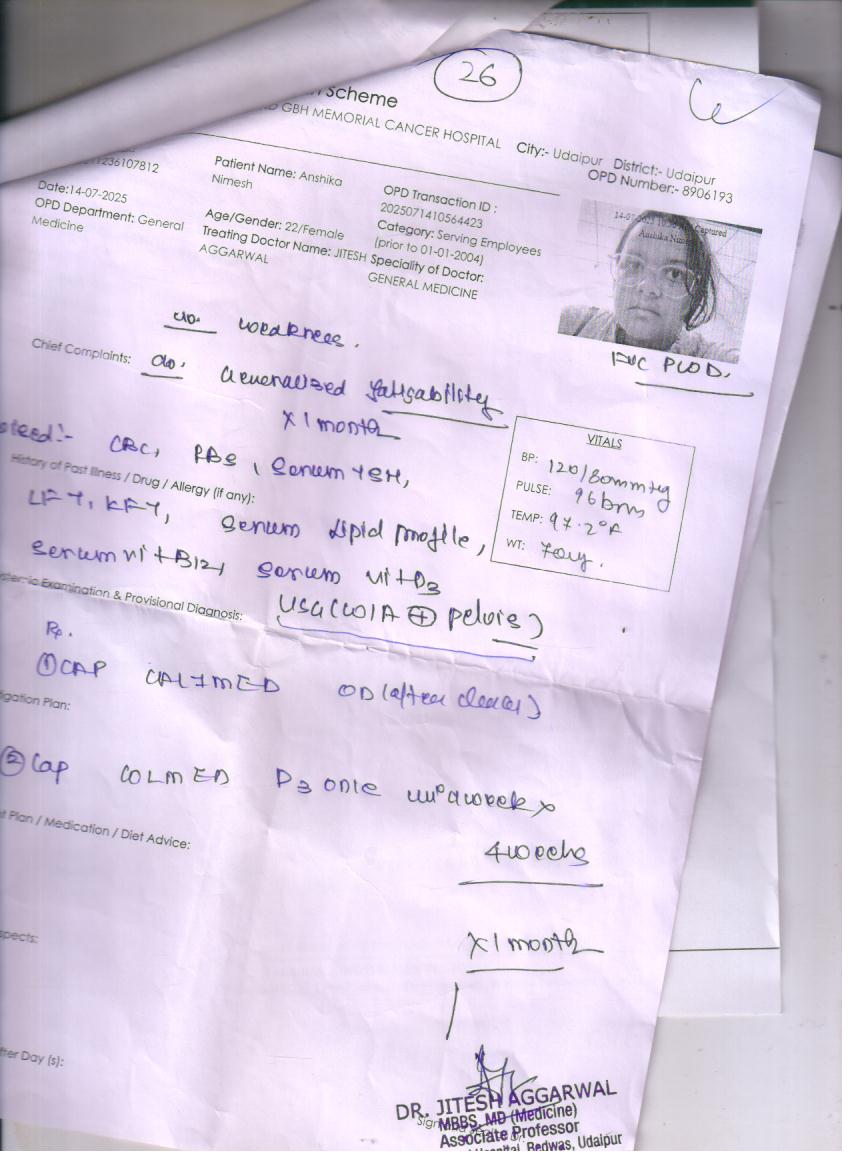 26
Scheme
GBH MEMORIAL CANCER HOSPITAL City:- Udaipur District:- Udaipur
OPD Number:- 8906193
1236107812
Patient Name: Anshika
Nimesh
OPD Transaction ID :
2025071410564423
Date:14-07-2025
Age/Gender: 22/Female
Category: Serving Employees
(prior to 01-01-2004)
OPD Department: General
Medicine
Treating Doctor Name: JITESH
AGGARWAL
Speciality of Doctor:
GENERAL MEDICINE
Captured
weakness.
Chief Complaints:
Generalised fatigability
x 1 month
VITALS
BP: 120/80mmHg
PULSE: 96bpm
TEMP: 97.2°F
WT:
CBC, RBS, Serum TSH,
History of Past Illness / Drug / Allergy (if any):
LFT, KFT, Serum Lipid profile,
Serum vit B12, Serum vit D3
Examination & Provisional Diagnosis:
USG (W/A ⊕ pelvis)
Rx.
① CAP OD (after
Plan:
② Cap D3 once week x
4 weeks
Plan / Medication / Diet Advice:
x 1 month
Day (s):
DR. JITESH AGGARWAL
MBBS, MD (Medicine)
Associate Professor
Bedwas, Udaipur